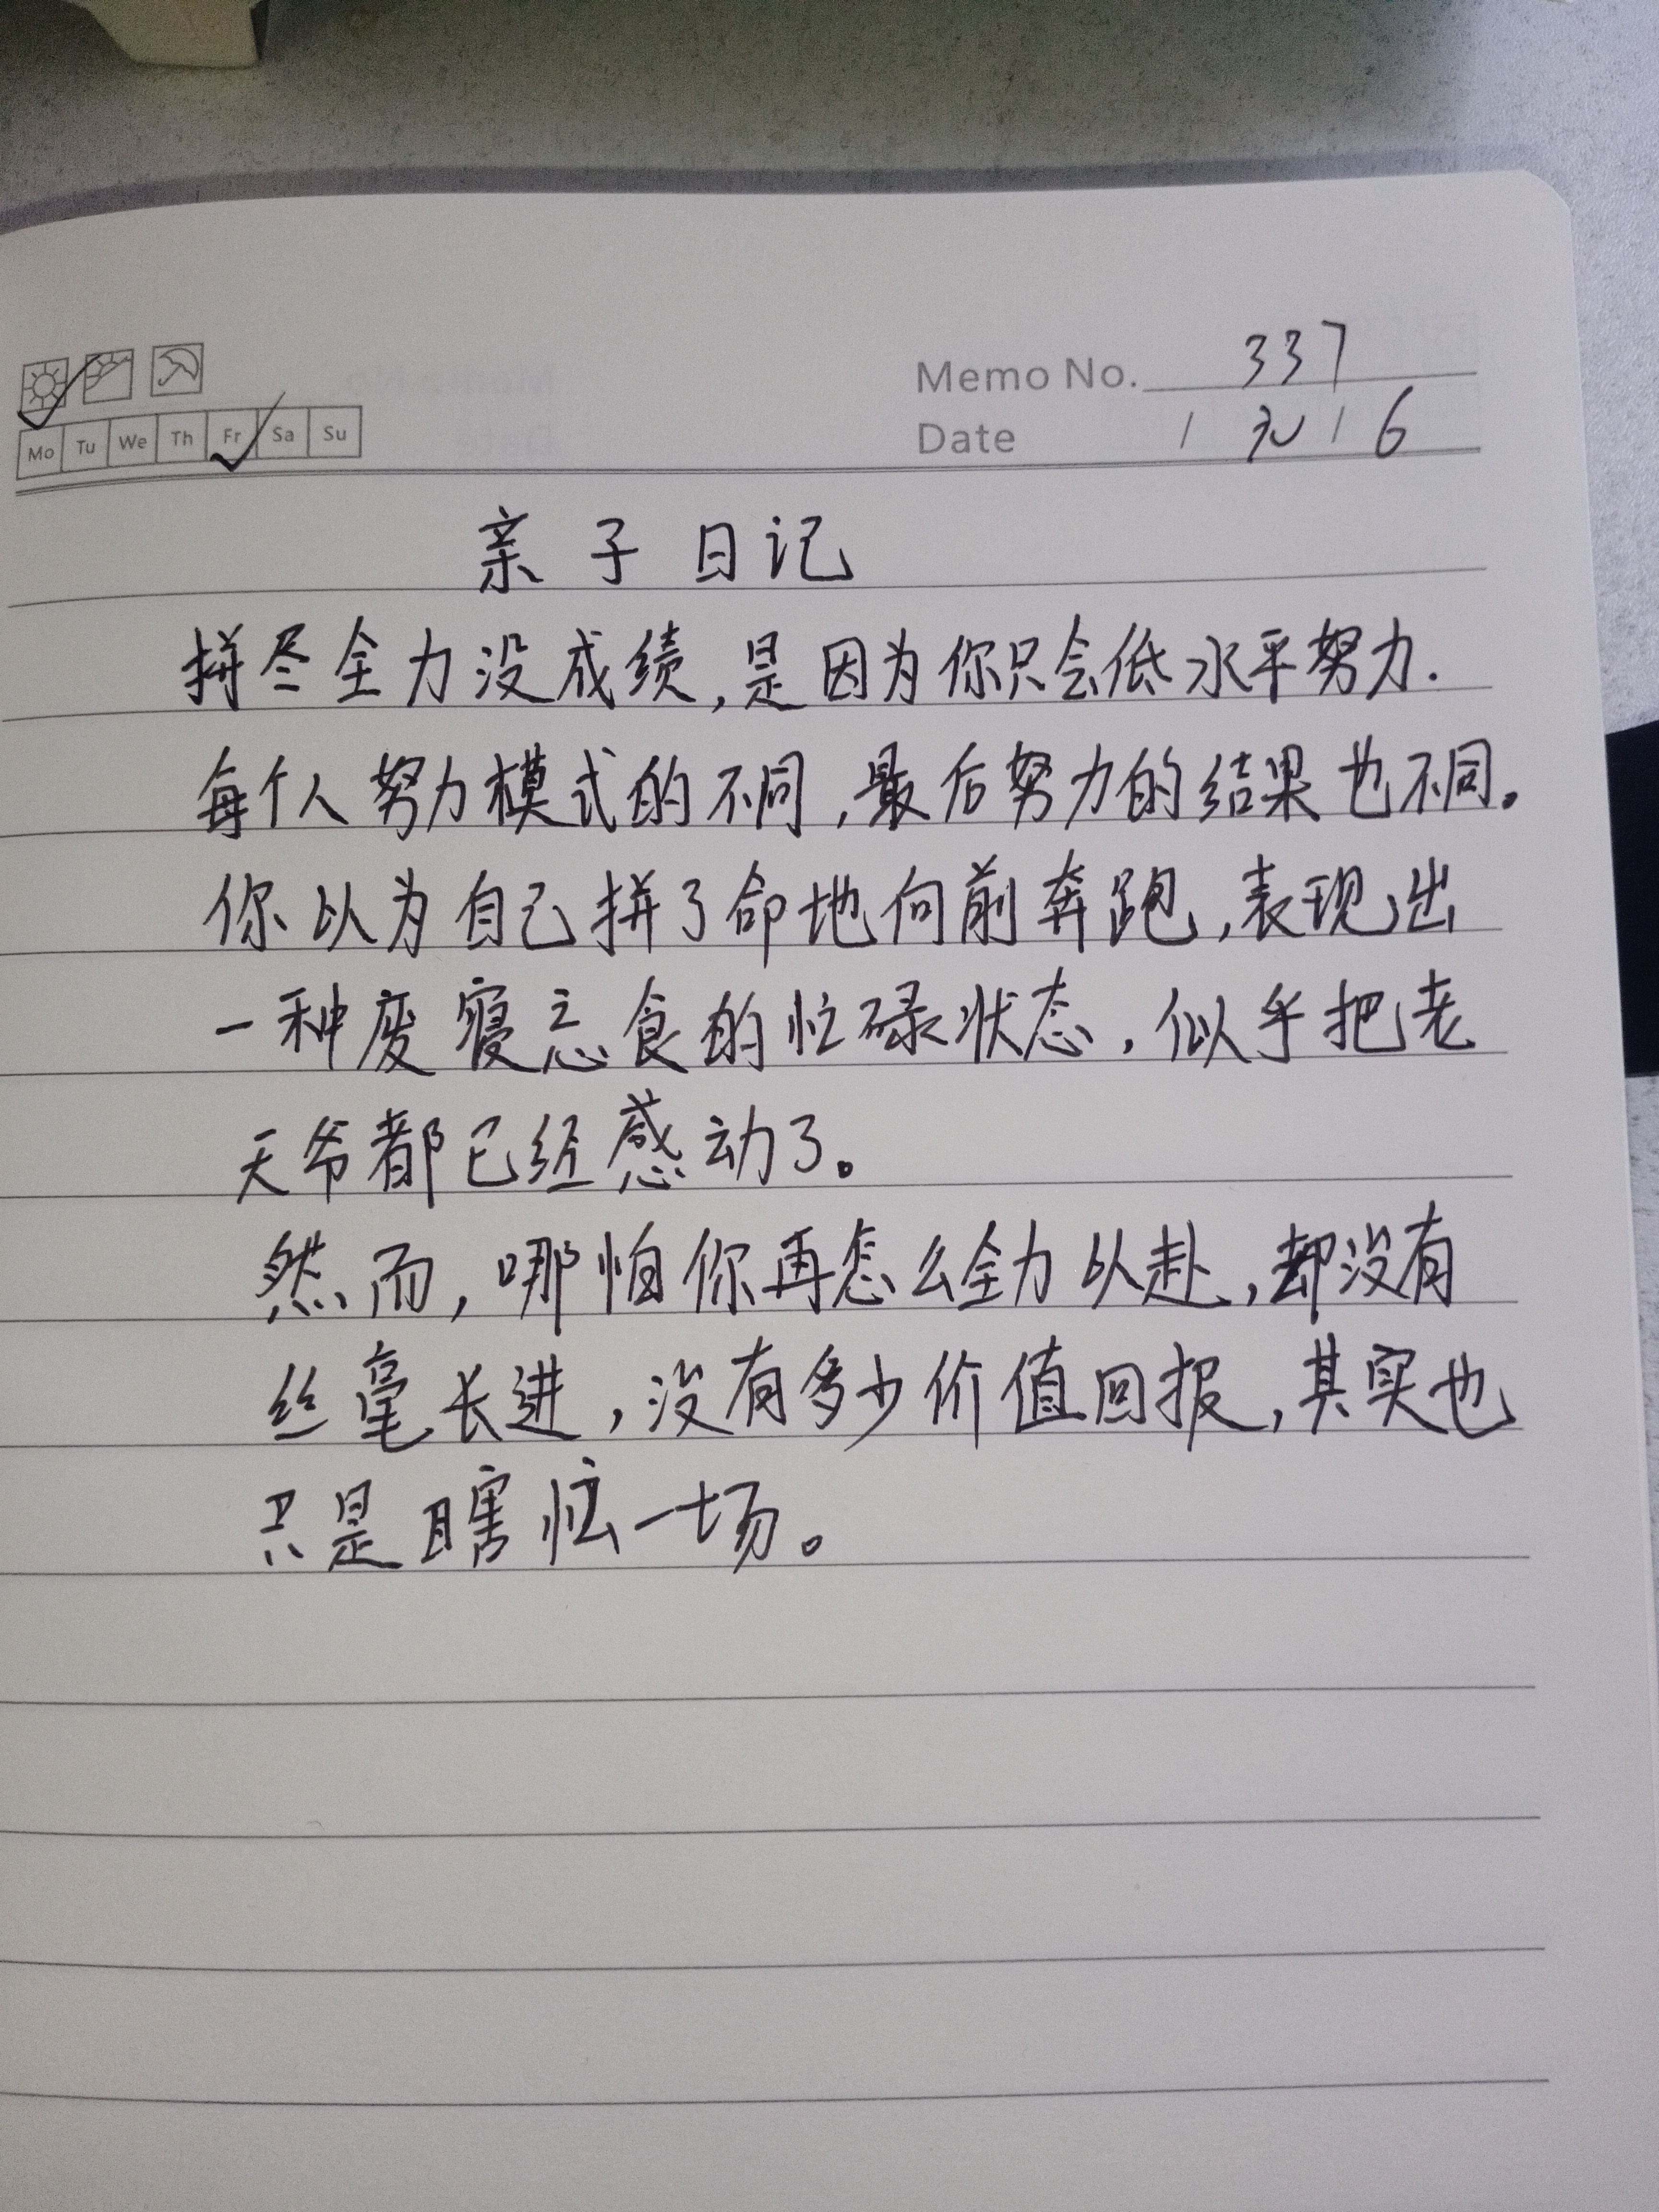 Memo No. 337
Mo Tu We Th Fr Sa Su
Date 6
亲子日记
拼尽全力没成绩,是因为你只会低水平努力.
每个人努力模式的不同,最后努力的结果也不同。
你以为自己拼了命地向前奔跑,表现出
一种废寝忘食的忙碌状态,似乎把老
天爷都已经感动了。
然而,哪怕你再怎么全力以赴,却没有
丝毫长进,没有多少价值回报,其实也
只是瞎忙一场。